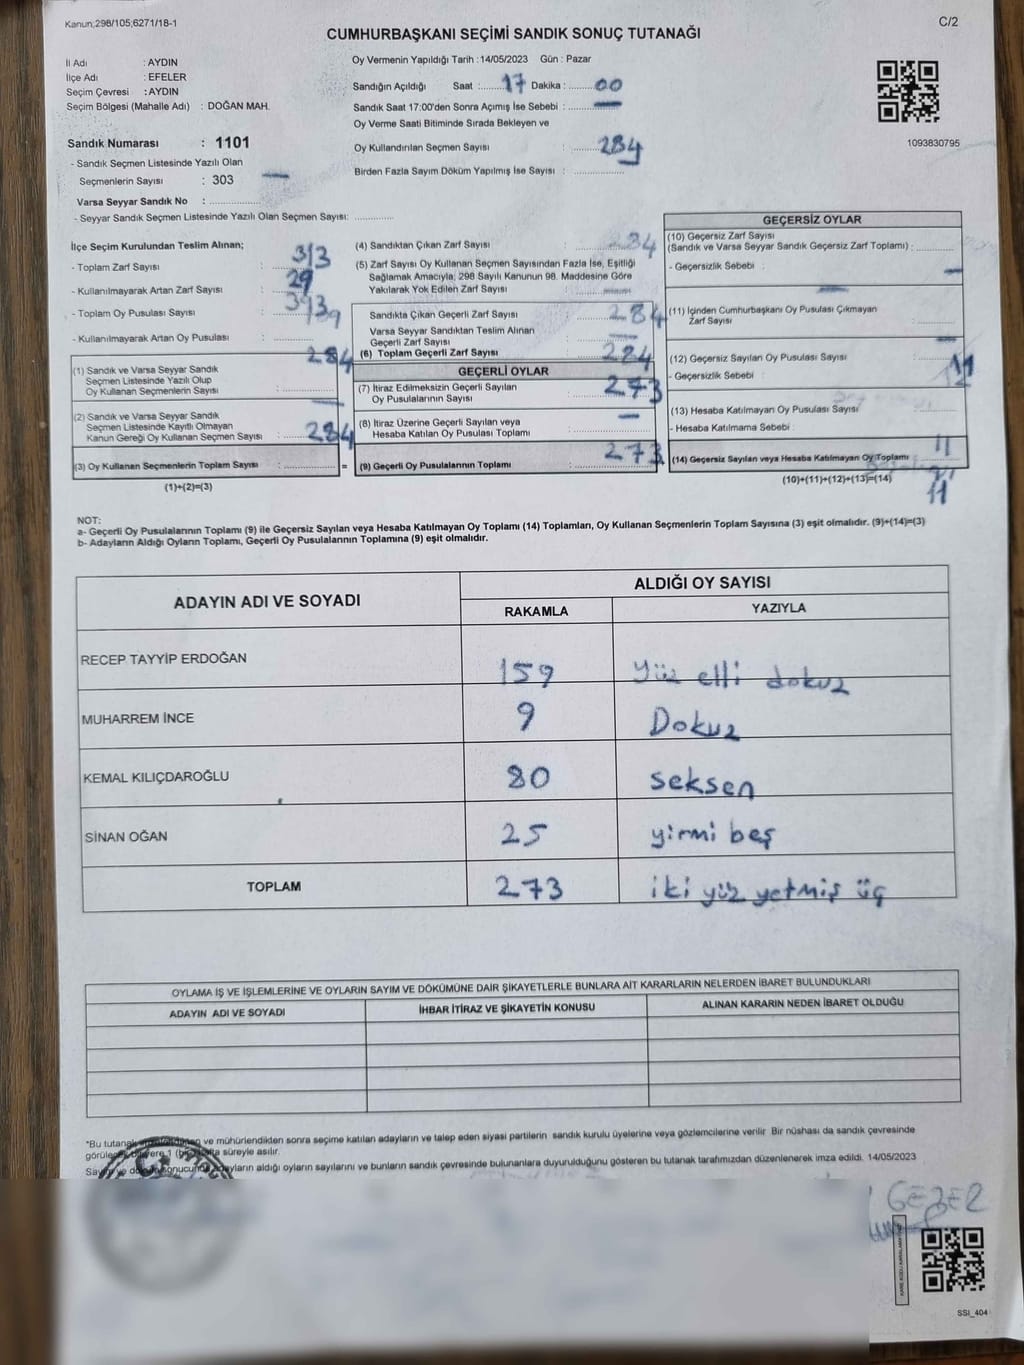 Kanun;298/105;6271/18-1
C/2
CUMHURBAŞKANI SEÇİMİ SANDIK SONUÇ TUTANAĞI
İl Adı : AYDIN
İlçe Adı : EFELER
Seçim Çevresi : AYDIN
Seçim Bölgesi (Mahalle Adı) : DOĞAN MAH.
Sandık Numarası : 1101
- Sandık Seçmen Listesinde Yazılı Olan
Seçmenlerin Sayısı : 303
Varsa Seyyar Sandık No :
- Seyyar Sandık Seçmen Listesinde Yazılı Olan Seçmen Sayısı:
Oy Vermenin Yapıldığı Tarih : 14/05/2023 Gün : Pazar
Sandığın Açıldığı Saat 17 Dakika : 00
Sandık Saat 17:00'den Sonra Açımış İse Sebebi : —
Oy Verme Saati Bitiminde Sırada Bekleyen ve
Oy Kullandırılan Seçmen Sayısı : 284
Birden Fazla Sayım Döküm Yapılmış İse Sayısı :
1093830795
İlçe Seçim Kurulundan Teslim Alınan;
- Toplam Zarf Sayısı : 313
- Kullanılmayarak Artan Zarf Sayısı : 29
- Toplam Oy Pusulası Sayısı :
- Kullanılmayarak Artan Oy Pusulası :
(1) Sandık ve Varsa Seyyar Sandık 284
Seçmen Listesinde Yazılı Olup
Oy Kullanan Seçmenlerin Sayısı :
(2) Sandık ve Varsa Seyyar Sandık —
Seçmen Listesinde Kayıtlı Olmayan
Kanun Gereği Oy Kullanan Seçmen Sayısı : 284
(3) Oy Kullanan Seçmenlerin Toplam Sayısı : =
(1)+(2)=(3)
(4) Sandıktan Çıkan Zarf Sayısı : 284
(5) Zarf Sayısı Oy Kullanan Seçmen Sayısından Fazla İse, Eşitliği
Sağlamak Amacıyla, 298 Sayılı Kanunun 98. Maddesine Göre
Yakılarak Yok Edilen Zarf Sayısı :
Sandıkta Çıkan Geçerli Zarf Sayısı : 284
Varsa Seyyar Sandıktan Teslim Alınan
Geçerli Zarf Sayısı : —
(6) Toplam Geçerli Zarf Sayısı : 284
GEÇERLİ OYLAR
(7) İtiraz Edilmeksizin Geçerli Sayılan 273
Oy Pusulalarının Sayısı :
(8) İtiraz Üzerine Geçerli Sayılan veya —
Hesaba Katılan Oy Pusulası Toplamı :
(9) Geçerli Oy Pusulalarının Toplamı : 273
GEÇERSİZ OYLAR
(10) Geçersiz Zarf Sayısı
(Sandık ve Varsa Seyyar Sandık Geçersiz Zarf Toplamı) :
- Geçersizlik Sebebi : —
(11) İçinden Cumhurbaşkanı Oy Pusulası Çıkmayan
Zarf Sayısı :
(12) Geçersiz Sayılan Oy Pusulası Sayısı :
- Geçersizlik Sebebi :
(13) Hesaba Katılmayan Oy Pusulası Sayısı :
- Hesaba Katılmama Sebebi :
(14) Geçersiz Sayılan veya Hesaba Katılmayan Oy Toplamı 11
(10)+(11)+(12)+(13)=(14) 11
NOT:
a- Geçerli Oy Pusulalarının Toplamı (9) ile Geçersiz Sayılan veya Hesaba Katılmayan Oy Toplamı (14) Toplamları, Oy Kullanan Seçmenlerin Toplam Sayısına (3) eşit olmalıdır. (9)+(14)=(3)
b- Adayların Aldığı Oyların Toplamı, Geçerli Oy Pusulalarının Toplamına (9) eşit olmalıdır.
ADAYIN ADI VE SOYADI ALDIĞI OY SAYISI
RAKAMLA YAZIYLA
RECEP TAYYİP ERDOĞAN 159 yüz elli dokuz
MUHARREM İNCE 9 Dokuz
KEMAL KILIÇDAROĞLU 80 seksen
SİNAN OĞAN 25 yirmi beş
TOPLAM 273 iki yüz yetmiş üç
OYLAMA İŞ VE İŞLEMLERİNE VE OYLARIN SAYIM VE DÖKÜMÜNE DAİR ŞİKAYETLERLE BUNLARA AİT KARARLARIN NELERDEN İBARET BULUNDUKLARI
ADAYIN ADI VE SOYADI İHBAR İTİRAZ VE ŞİKAYETİN KONUSU ALINAN KARARIN NEDEN İBARET OLDUĞU
*Bu tutanak ve mühürlendikten sonra seçime katılan adayların ve talep eden siyasi partilerin sandık kurulu üyelerine veya gözlemcilerine verilir. Bir nüshası da sandık çevresinde
görülecek bir yere 1 (bir) hafta süreyle asılır.
Sayım ve döküm sonucunda adayların aldığı oyların sayılarını ve bunların sandık çevresinde bulunanlara duyurulduğunu gösteren bu tutanak tarafımızdan düzenlenerek imza edildi. 14/05/2023
GEZER
SSI_404